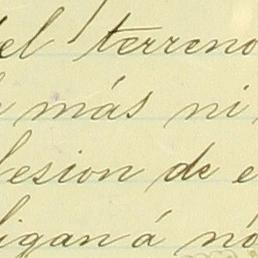 del terreno
más ni
lesion de e
ligan á nó